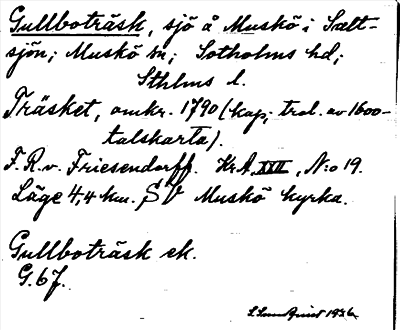 Gullboträsk, sjö å Muskö i Salt-
sjön; Muskö sn; Sotholms hd;
Sthlms l.
Träsket, omkr. 1790 (kop; trol. av 1600-
talskarta).
F.R.v. Friesendorff. Kr.A, XXII, N:o 19.
Läge 4,4 km. SV Muskö kyrka.
Gullboträsk ek.
G.67.
S. Lundqvist